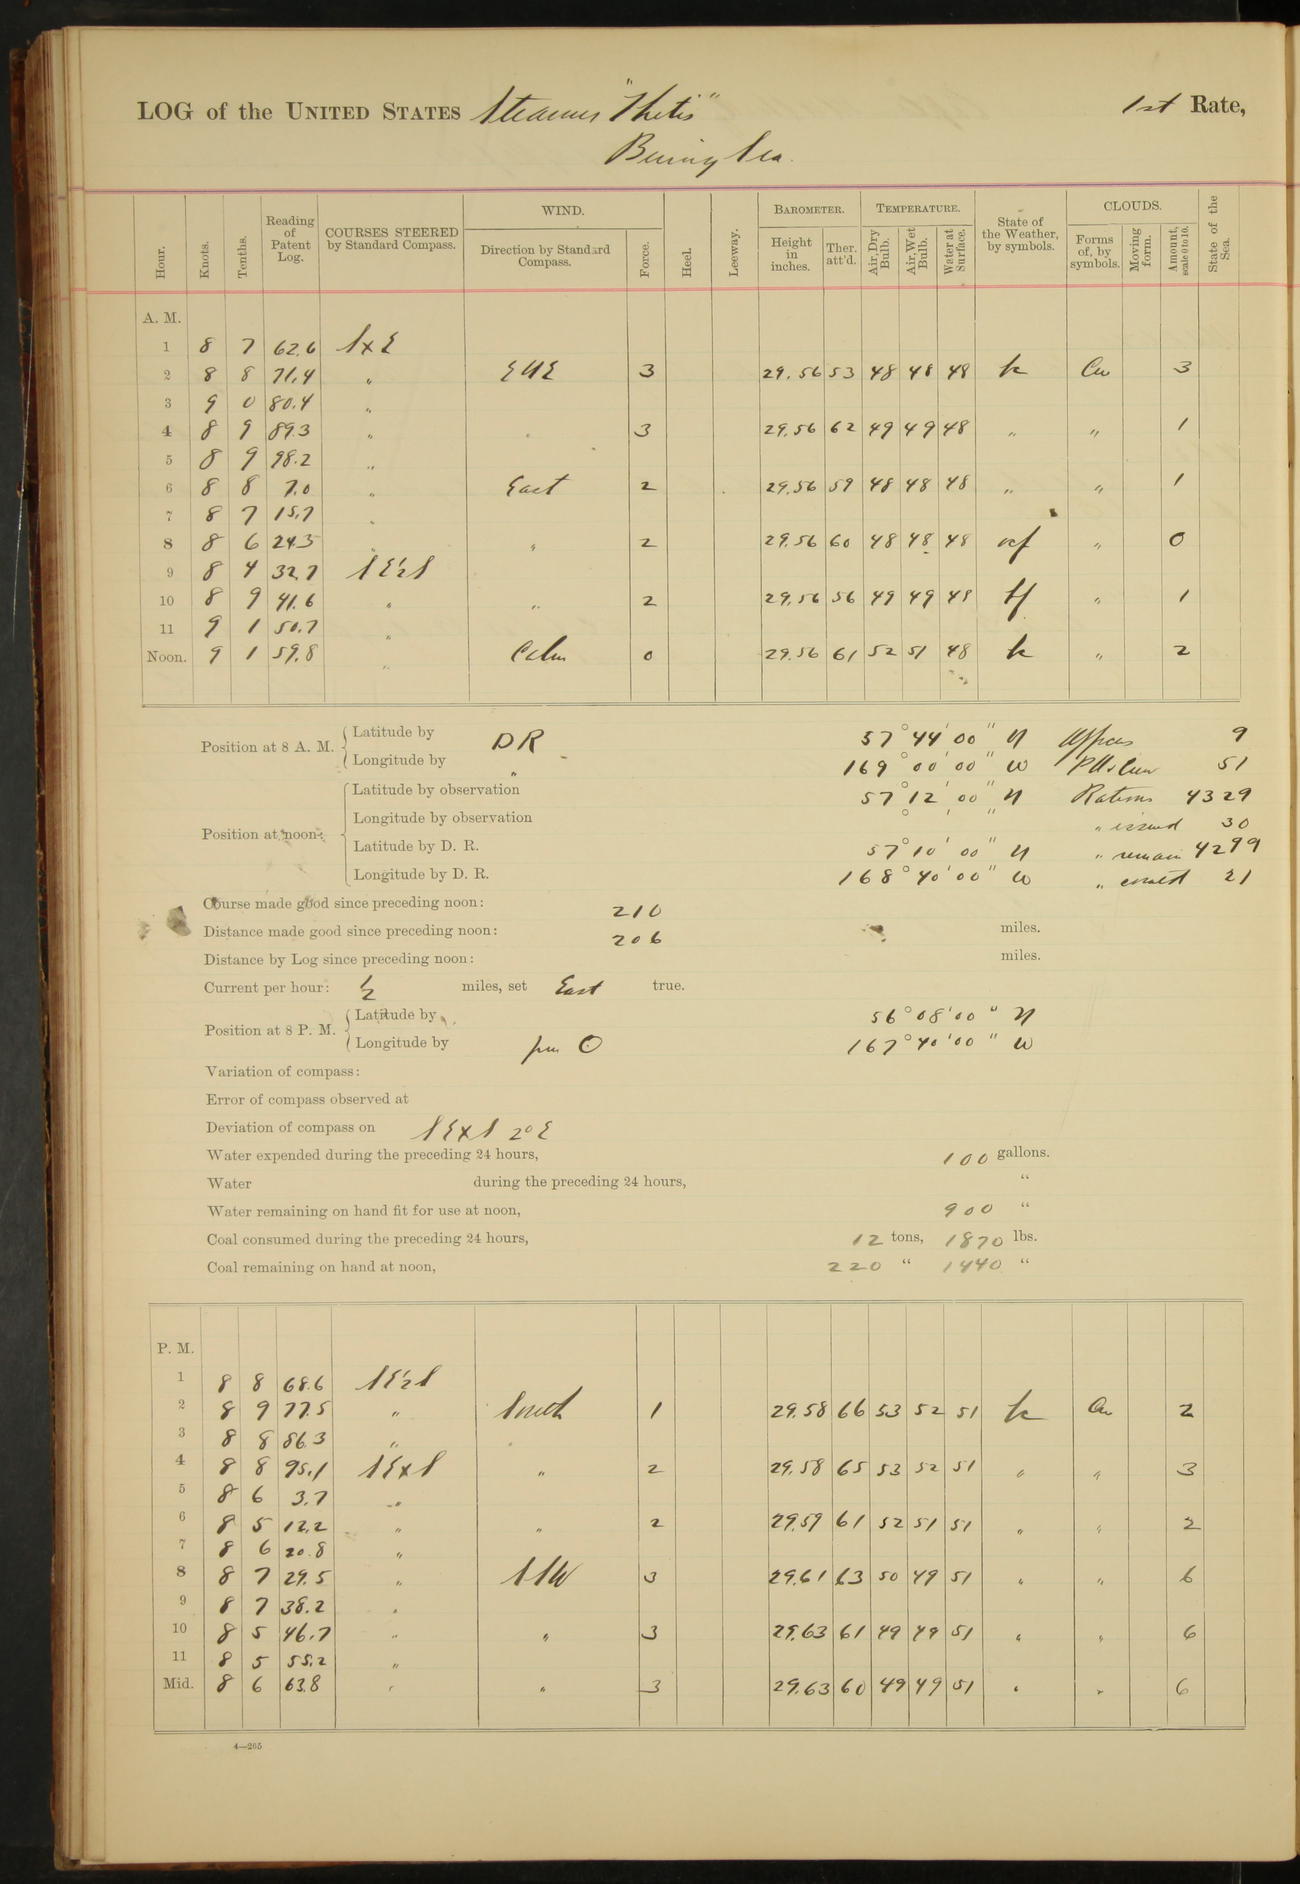 LOG of the UNITED STATES Steamer "Thetis" 1st Rate,
Bering Sea.
Hour. Knots. Tenths. Reading of Patent Log. COURSES STEERED by Standard Compass. WIND. Direction by Standard Compass. Force. Heel. Leeway. BAROMETER. Height in inches. Ther. att'd. TEMPERATURE. Air, Dry Bulb. Air, Wet Bulb. Water at Surface. State of the Weather, by symbols. CLOUDS. Forms of, by symbols. Moving form. Amount, scale 0 to 10. State of the Sea.
A. M.
1 8 7 62.6 SxE
2 8 8 71.4 " ENE 3 29.56 53 48 48 48 bc Cu 3
3 9 0 80.4 "
4 8 9 89.3 " " 3 29.56 62 49 49 48 " " 1
5 8 9 98.2 "
6 8 8 7.0 " East 2 29.56 59 48 48 48 " " 1
7 8 7 15.7 "
8 8 6 24.3 " " 2 29.56 60 48 48 48 ocf " 0
9 8 4 32.7 SE½S
10 8 9 41.6 " " 2 29.56 56 49 49 48 bf " 1
11 9 1 50.7 "
Noon. 9 1 59.8 " Calm 0 29.56 61 52 51 48 bc " 2
Position at 8 A. M. Latitude by DR 57° 44' 00" N Officers 9
Longitude by " 169° 00' 00" W P.O. & Crew 51
Position at noon: Latitude by observation 57° 12' 00" N Rations 4329
Longitude by observation ° ' " " issued 30
Latitude by D. R. 57° 10' 00" N " remain 4299
Longitude by D. R. 168° 40' 00" W " 21
Course made good since preceding noon: 210
Distance made good since preceding noon: 206 miles.
Distance by Log since preceding noon: miles.
Current per hour: ½ miles, set East true.
Position at 8 P. M. Latitude by 56° 08' 00" N
Longitude by pm ⊙ 167° 40' 00" W
Variation of compass:
Error of compass observed at
Deviation of compass on SExS 2° E
Water expended during the preceding 24 hours, 100 gallons.
Water during the preceding 24 hours, "
Water remaining on hand fit for use at noon, 900 "
Coal consumed during the preceding 24 hours, 12 tons, 1870 lbs.
Coal remaining on hand at noon, 220 " 1440 "
P. M.
1 8 8 68.6 SE½S
2 8 9 77.5 " South 1 29.58 66 53 52 51 bc Cu 2
3 8 8 86.3 "
4 8 8 95.1 SExS " 2 29.58 65 53 52 51 " " 3
5 8 6 3.7 "
6 8 5 12.2 " " 2 29.59 61 52 51 51 " " 2
7 8 6 20.8 "
8 8 7 29.5 " SSW 3 29.61 63 50 49 51 " " 6
9 8 7 38.2 "
10 8 5 46.7 " " 3 29.63 61 49 49 51 " " 6
11 8 5 55.2 "
Mid. 8 6 63.8 " " 3 29.63 60 49 49 51 " " 6
4—265